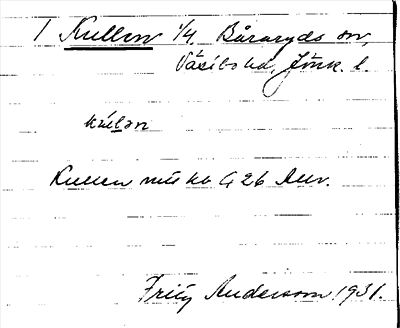 1 Kullen 1/4, Båraryds sn,
Västbo hd, Jönk. l.
kúl̲ən
Kullen mtl kb G 26 Avr.
Fritz Andersson 1931.